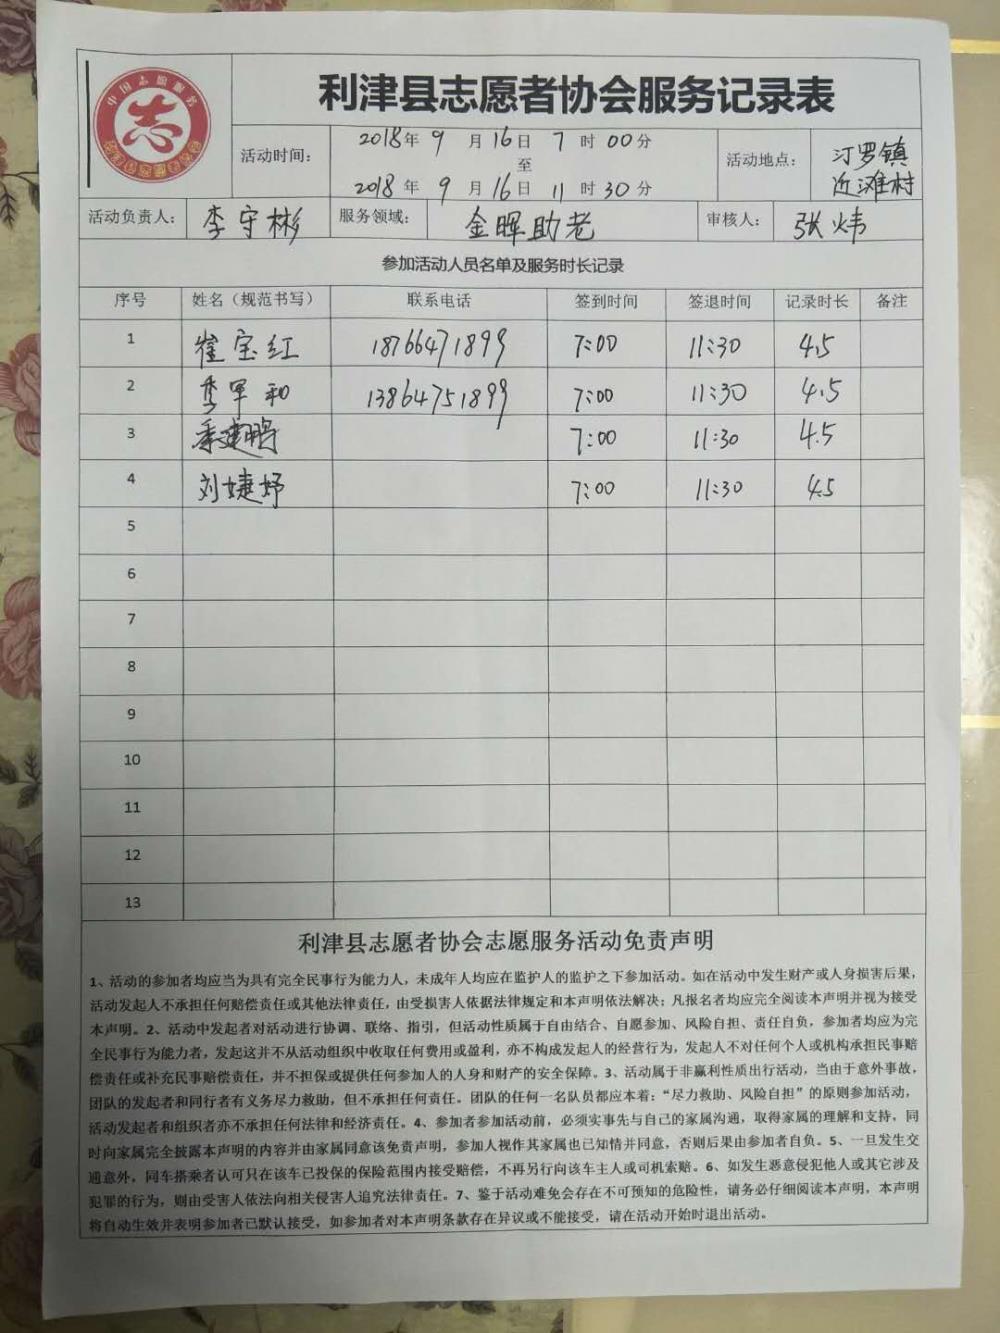 中国志愿服务
志
利津县志愿者协会服务记录表
活动时间：
2018年 9 月 16日 7 时 00分
至
2018年 9 月 16日 11 时 30分
活动地点：
汀罗镇
近滩村
活动负责人： 李守彬 服务领域： 金晖助老 审核人： 张炜
参加活动人员名单及服务时长记录
序号 姓名（规范书写） 联系电话 签到时间 签退时间 记录时长 备注
1 崔宝红 18766471899 7:00 11:30 4.5
2 季军和 13864751899 7:00 11:30 4.5
3 季建鹏 7:00 11:30 4.5
4 刘婕妤 7:00 11:30 4.5
5
6
7
8
9
10
11
12
13
利津县志愿者协会志愿服务活动免责声明
1、活动的参加者均应当为具有完全民事行为能力人，未成年人均应在监护人的监护之下参加活动。如在活动中发生财产或人身损害后果，
活动发起人不承担任何赔偿责任或其他法律责任，由受损害人依据法律规定和本声明依法解决；凡报名者均应完全阅读本声明并视为接受
本声明。2、活动中发起者对活动进行协调、联络、指引，但活动性质属于自由结合、自愿参加、风险自担、责任自负，参加者均应为完
全民事行为能力者，发起这并不从活动组织中收取任何费用或盈利，亦不构成发起人的经营行为，发起人不对任何个人或机构承担民事赔
偿责任或补充民事赔偿责任，并不担保或提供任何参加人的人身和财产的安全保障。3、活动属于非赢利性质出行活动，当由于意外事故，
团队的发起者和同行者有义务尽力救助，但不承担任何责任。团队的任何一名队员都应本着：“尽力救助、风险自担”的原则参加活动，
活动发起者和组织者亦不承担任何法律和经济责任。4、参加者参加活动前，必须实事先与自己的家属沟通，取得家属的理解和支持，同
时向家属完全披露本声明的内容并由家属同意该免责声明，参加人视作其家属也已知情并同意，否则后果由参加者自负。5、一旦发生交
通意外，同车搭乘者认可只在该车已投保的保险范围内接受赔偿，不再另行向该车主人或司机索赔。6、如发生恶意侵犯他人或其它涉及
犯罪的行为，则由受害人依法向相关侵害人追究法律责任。7、鉴于活动难免会存在不可预知的危险性，请务必仔细阅读本声明，本声明
将自动生效并表明参加者已默认接受，如参加者对本声明条款存在异议或不能接受，请在活动开始时退出活动。